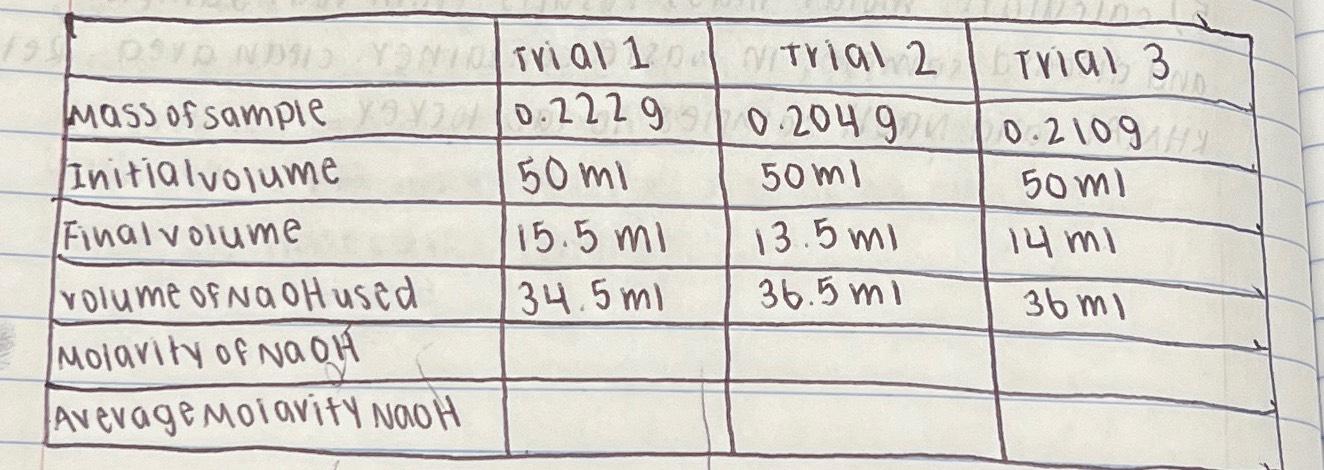 Trial 1 Trial 2 Trial 3
Mass of sample 0.222g 0.204g 0.210g
Initial volume 50 ml 50 ml 50 ml
Final volume 15.5 ml 13.5 ml 14 ml
volume of NaOH used 34.5 ml 36.5 ml 36 ml
Molarity of NaOH
Average Molarity NaOH